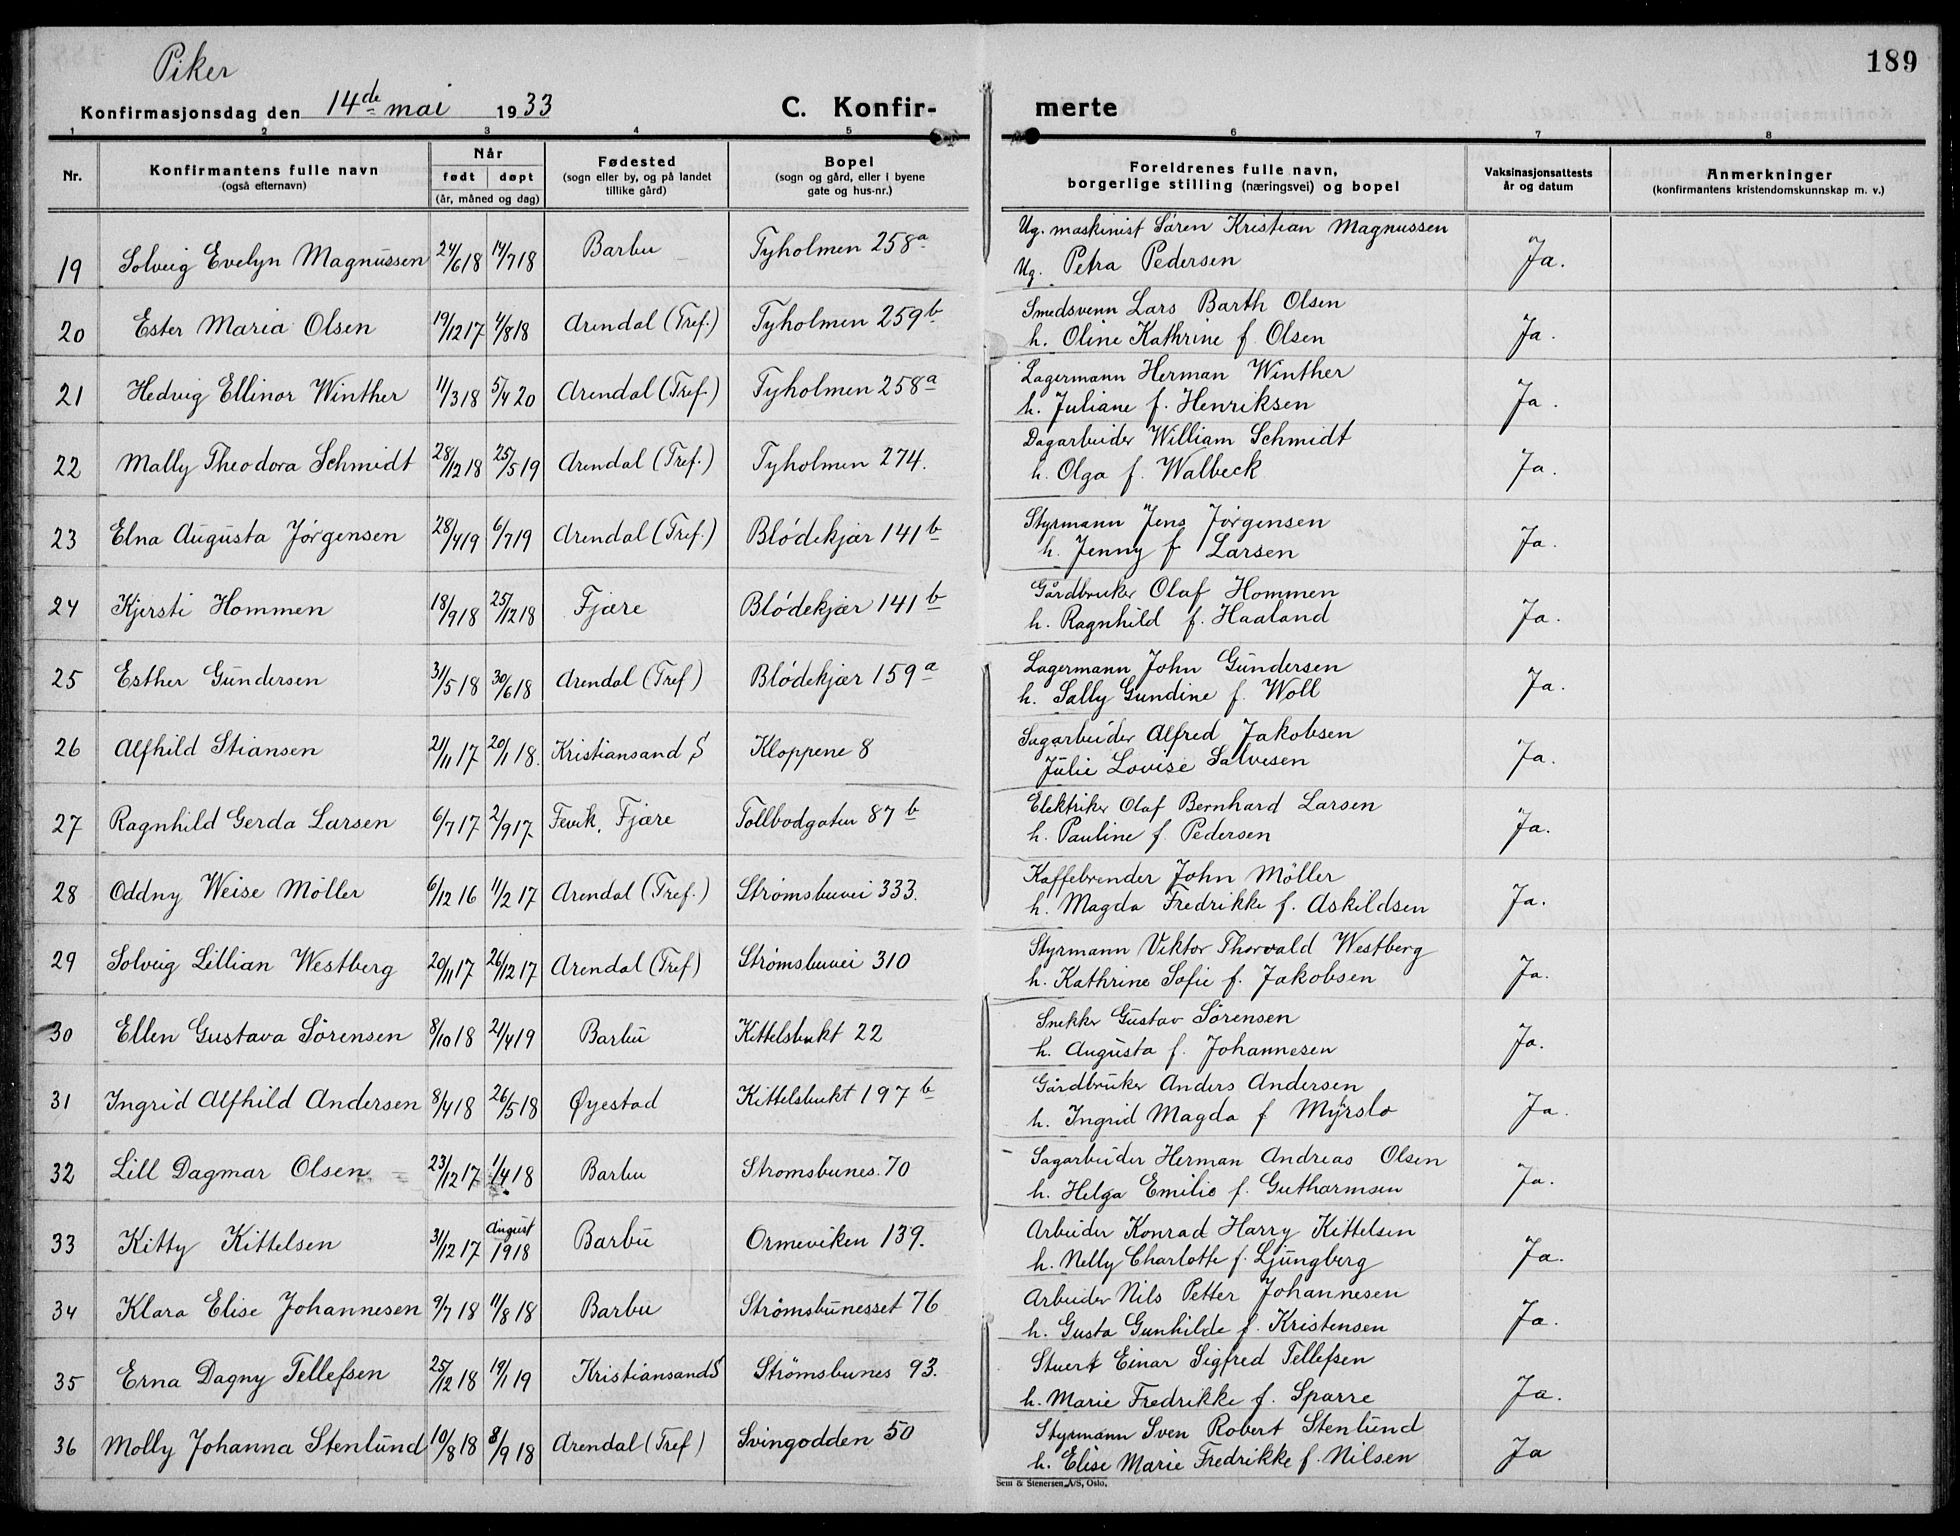 189
Piker
Konfirmasjonsdag den 14de mai 1933 C. Konfir- merte
1 2 3 4 5 6 7 8
Nr. Konfirmantens fulle navn (også efternavn) Når født døpt (år, måned og dag) Fødested (sogn eller by, og på landet tillike gård) Bopel (sogn og gård, eller i byene gate og hus-nr.) Foreldrenes fulle navn, borgerlige stilling (næringsvei) og bopel Vaksinasjonsattests år og datum Anmerkninger (konfirmantens kristendomskunnskap m. v.)
19 Solveig Evelyn Magnussen 24/6 18 14/7 18 Barbu Tyholmen 258a Ug. maskinist Søren Kristian Magnussen
Ug. Petra Pedersen Ja.
20 Ester Maria Olsen 19/12 17 4/8 18 Arendal (Tref.) Tyholmen 259b Smedsvenn Lars Barth Olsen
h. Oline Kathrine f. Olsen Ja.
21 Hedvig Ellinor Winther 11/3 18 5/4 20 Arendal (Tref.) Tyholmen 258a Lagermann Herman Winther
h. Juliane f. Henriksen Ja.
22 Mally Theodora Schmidt 28/12 18 25/5 19 Arendal (Tref.) Tyholmen 274. Dagarbeider William Schmidt
h. Olga f. Walbeck Ja.
23 Elna Augusta Jørgensen 28/4 19 6/7 19 Arendal (Tref.) Blødekjær 141b Styrmann Jens Jørgensen
h. Jenny f Larsen Ja.
24 Kjersti Hommen 18/9 18 25/12 18 Fjære Blødekjær 141b Gårdbruker Olaf Hommen
h. Ragnhild f. Haaland Ja.
25 Esther Gundersen 31/5 18 30/6 18 Arendal (Tref) Blødekjær 159a Lagermann John Gundersen
h. Sally Gundine f. Woll Ja.
26 Alfhild Stiansen 21/11 17 20/1 18. Kristiansand S Kloppene 8 Sagarbeider Alfred Jakobsen
Julie Lovise Salvesen Ja.
27 Ragnhild Gerda Larsen 6/7 17 2/9 17 Fevik, Fjære Tollbodgaten 87b Elektriker Olaf Bernhard Larsen
h. Pauline f. Pedersen Ja.
28 Oddny Weise Möller 6/12 16 11/2 17 Arendal (Tref.) Strømsbuvei 333. Kaffebrender John Möller
h. Magda Fredrikke f. Askildsen Ja.
29 Solveig Lillian Westberg 20/11 17 26/12 17 Arendal (Tref) Strømsbuvei 310 Styrmann Viktor Thorvald Westberg
h. Kathrine Sofie f. Jakobsen Ja.
30 Ellen Gustava Sørensen 8/10 18 21/4 19 Barbu Kittelsbukt 22 Snekker Gustav Sørensen
h. Augusta f. Johannesen Ja.
31 Ingrid Alfhild Andersen 8/4 18 26/5 18 Øyestad Kittelsbukt 197b Gårdbruker Anders Andersen
h. Ingrid Magda f Myrslo Ja.
32 Lill Dagmar Olsen 23/12 17 1/4 18 Barbu Strømsbunes. 70 Sagarbeider Herman Andreas Olsen
h. Helga Emilie f. Guthormsen Ja.
33 Kitty Kittelsen 31/12 17 August 1918 Barbu Ormeviken 139. Arbeider Konrad Harry Kittelsen
h. Nelly Charlotte f. Ljungberg Ja.
34 Klara Elise Johannesen 9/7 18 11/8 18 Barbu Strømsbunesset 76 Arbeider Nils Petter Johannesen
h. Gusta Gunhilde f. Kristensen Ja.
35 Erna Dagny Tellefsen 25/12 18 19/1 19 Kristiansand S Strømsbunes 93. Stuert Einar Sigfred Tellefsen
h. Marie Fredrikke f. Sparre Ja.
36 Molly Johanna Stenlund 10/8 18 8/9 18 Arendal (Tref) Svingodden 50 Styrmann Sven Robert Stenlund
h. Elise Marie Fredrikke f. Nilsen Ja
Sem & Stenersen A/S, Oslo.